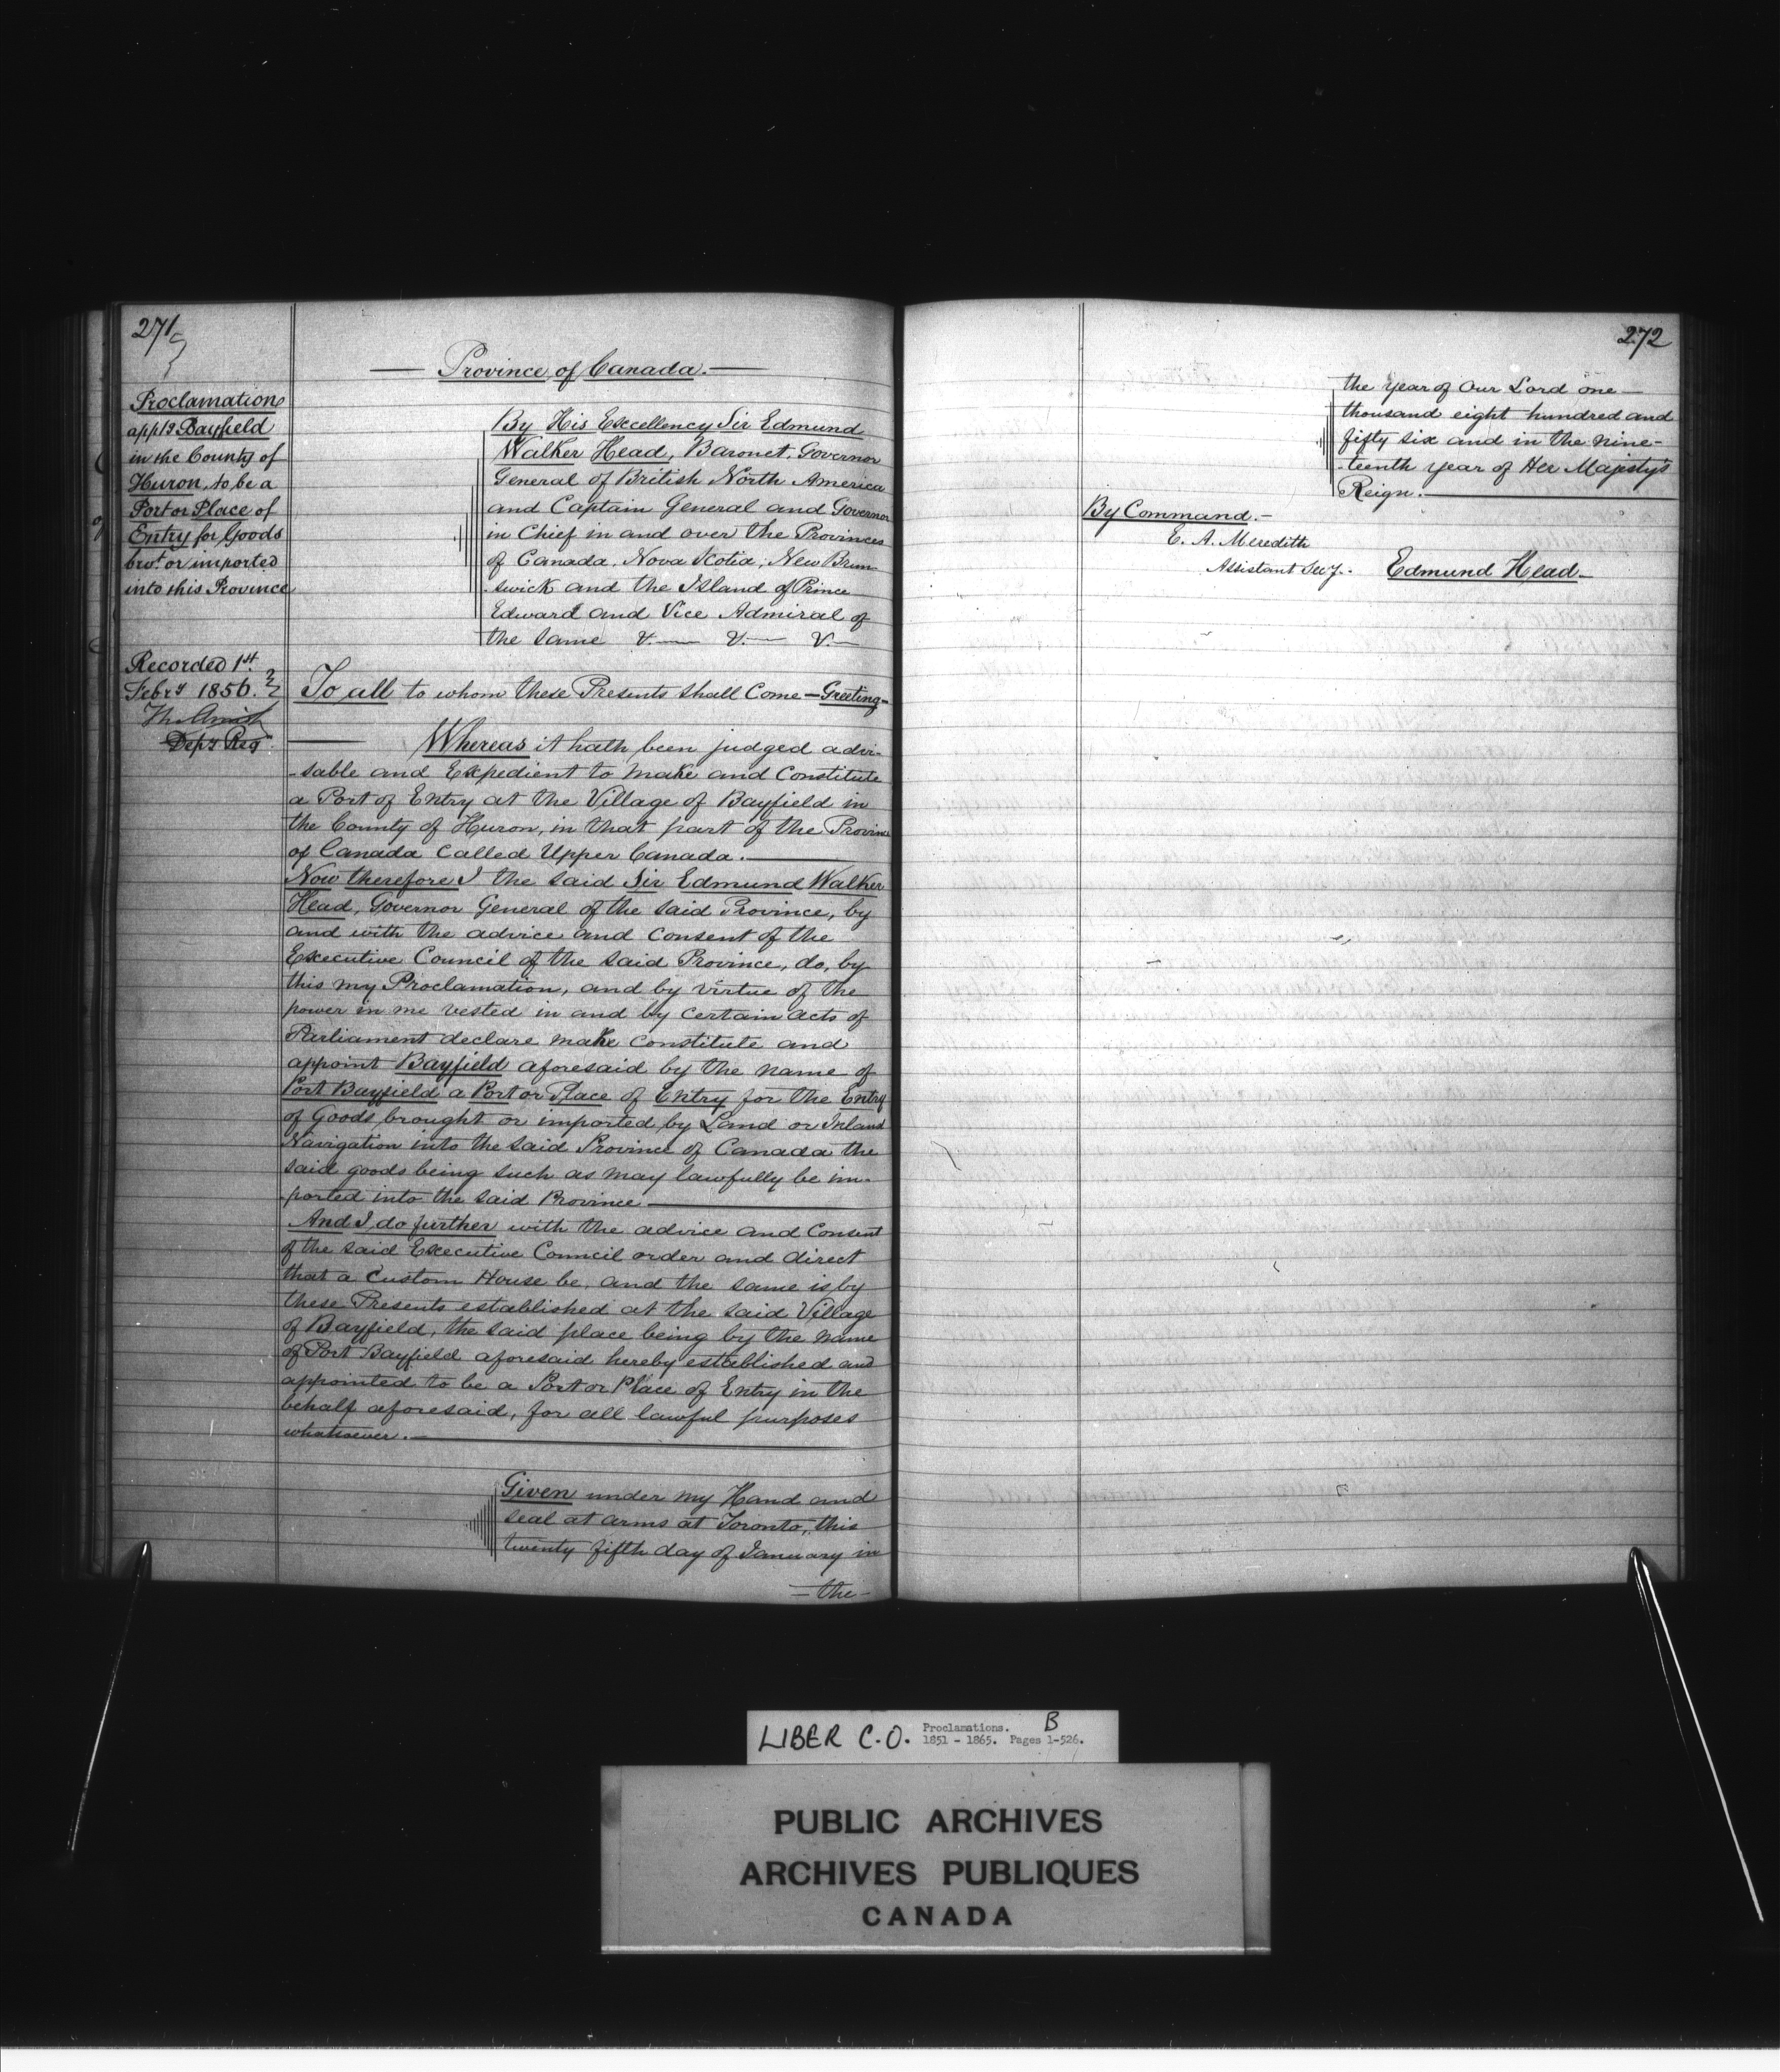 271
Province of Canada.
Proclamation
app'g Bayfield
in the County of
Huron, to be a
Port or Place of
Entry for Goods
bro't or imported
into this Province
Recorded 1st
Feby 1856.
Depy Reg
By His Excellency Sir Edmund
Walker Head, Baronet, Governor
General of British North America
and Captain General and Governor
in Chief in and over the Provinces
of Canada, Nova Scotia, New Brun-
swick and the Island of Prince
Edward and Vice Admiral of
the same &. — &. — &. —
To all to whom these Presents shall Come — Greeting —
Whereas it hath been judged advi-
-sable and Expedient to make and Constitute
a Port of Entry at the Village of Bayfield in
the County of Huron, in that part of the Province
of Canada Called Upper Canada. —
Now therefore I the said Sir Edmund Walker
Head, Governor General of the said Province, by
and with the advice and Consent of the
Executive Council of the said Province, do, by
this my Proclamation, and by virtue of the
power in me vested in and by certain acts of
Parliament declare make Constitute and
appoint Bayfield aforesaid by the name of
Port Bayfield a Port or Place of Entry for the Entry
of Goods brought or imported by Land or Inland
Navigation into the said Province of Canada the
said goods being such as may lawfully be im-
-ported into the said Province —
And I do further with the advice and Consent
of the said Executive Council order and direct
that a Custom House be, and the same is by
these Presents established at the said Village
of Bayfield, the said place being by the name
of Port Bayfield aforesaid hereby established and
appointed to be a Port or Place of Entry in the
behalf aforesaid, for all lawful purposes
whatsoever. —
Given under my Hand and
Seal at arms at Toronto, this
twenty fifth day of January in
— the —
272
the year of Our Lord one —
thousand eight hundred and
fifty six and in the nine-
-teenth year of Her Majesty's
Reign. —
By Command. —
E. A. Meredith
Assistant Secy. Edmund Head —
LIBER C.O. Proclamations. B
1851 - 1865. Pages 1-526.
PUBLIC ARCHIVES
ARCHIVES PUBLIQUES
CANADA